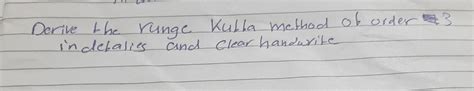 Derive the runge Kutta method of order 3
in detalies and clear handwrite